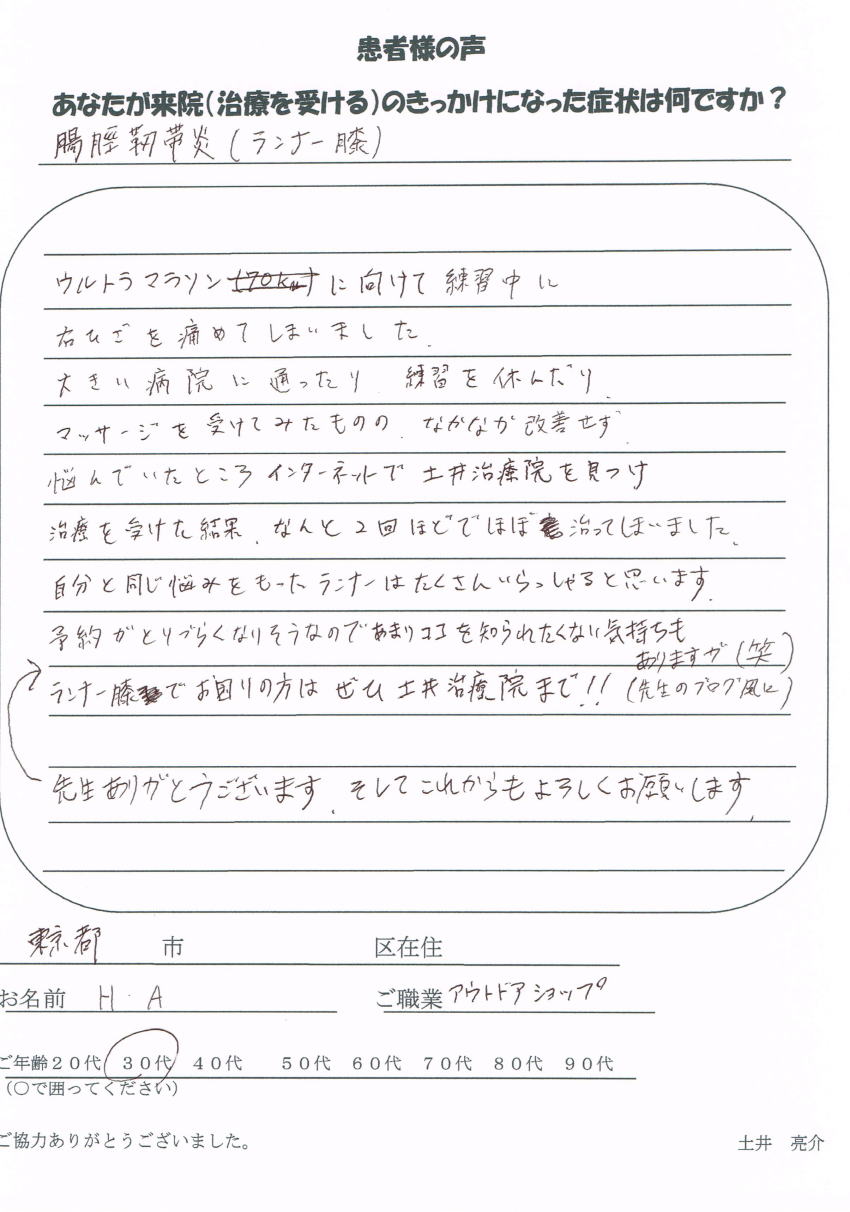 患者様の声
あなたが来院(治療を受ける)のきっかけになった症状は何ですか?
腸脛靭帯炎(ランナー膝)
ウルトラマラソン(70km)に向けて練習中に
右ひざを痛めてしまいました.
大きい病院に通ったり、練習を休んだり、
マッサージを受けてみたものの、なかなか改善せず、
悩んでいたところインターネットで土井治療院を見つけ
治療を受けた結果、なんと2回ほどでほぼ治ってしまいました、
自分と同じ悩みをもったランナーはたくさんいらっしゃると思います.
予約がとりづらくなりそうなのであまりココを知られたくない気持ちも
ありますが(笑)
ランナー膝でお困りの方はぜひ土井治療院まで!!(先生のブログ風に)
先生ありがとうございます、そしてこれからもよろしくお願いします、
東京都 市 区在住
お名前 H.A ご職業 アウトドアショップ
ご年齢20代 30代 40代 50代 60代 70代 80代 90代
(〇で囲ってください)
ご協力ありがとうございました。 土井 亮介